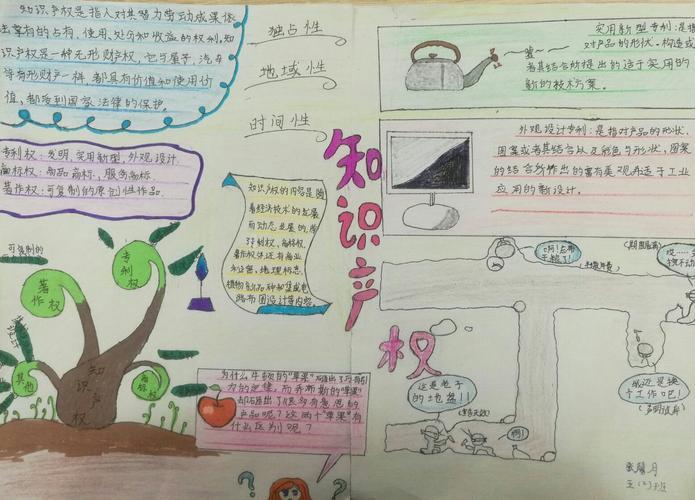 知识产权是指人对其智力劳动成果依
法享有的占有、使用、处分和收益的权利。知
识产权是一种无形财产权，它与房子、汽车
等有形财产一样，都具有价值和使用价
值，都受到国家法律的保护。
独占性
地域性
时间性
专利权：发明，实用新型，外观设计
商标权：商品商标，服务商标
著作权：可复制的原创性作品
知识产权的内容是随
着经济技术的发展
而动态发展的，除
专利权，商标权，
著作权
植物新品种和集成电
路布图设计等内容
知识产权
实用新型专利：是指
对产品的形状、构造或
者其结合所提出的适于实用的
新的技术方案。
外观设计专利：是指对产品的形状，
图案或者其结合以及颜色与形状，图案
的结合所作出的富有美观而适于工业
应用的新设计。
可复制的
专利权
著作权
其他
商标权
知识产权
为什么牛顿的“苹果”
力的定律，而乔布斯的“苹果”
产品呢？这两个“苹果”有
什么区别呢？
这是老子
的地盘!!
啊!
还是换
个工作吧!